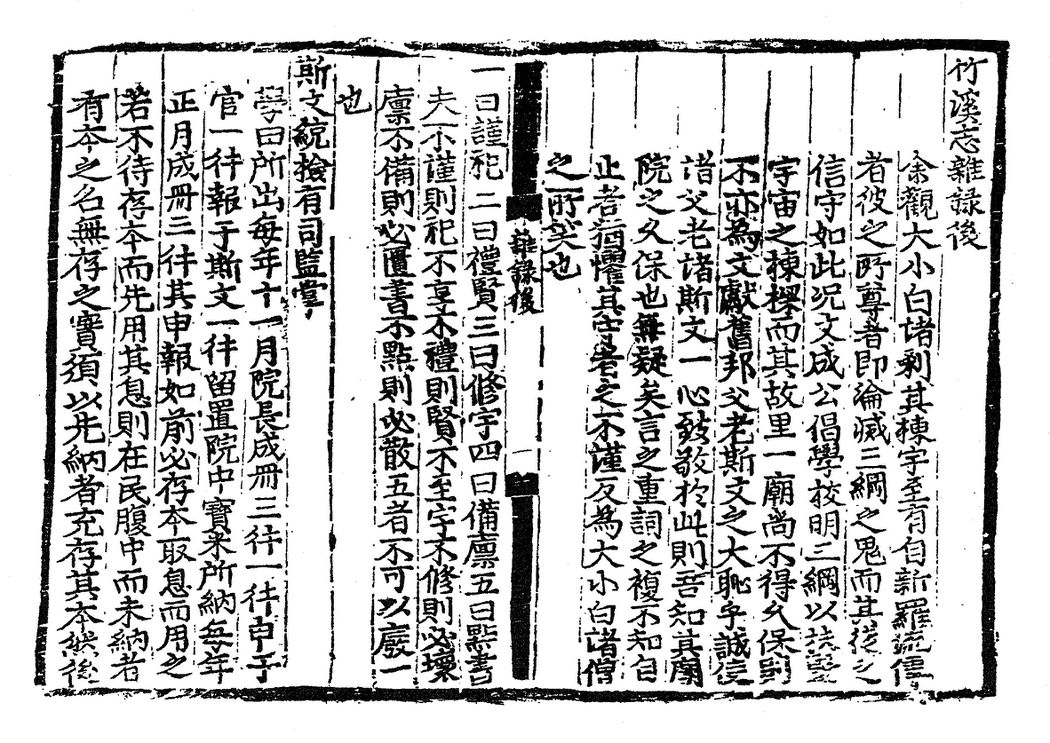 竹溪志雜錄後
余觀大小白諸刹其棟宇至有自新羅流傳
者彼之所尊者即淪滅三綱之鬼而其從之
信守如此况文成公倡學校明三綱以扶竪
宇宙之棟樑而其故里一廟尚不得久保則
不亦為文獻舊邦父老斯文之大恥乎誠使
諸父老諸斯文一心致敬於此則吾知其廟
院之久保也無疑矣言之重詞之複不知自
止者猶懼其守者之不謹反為大小白諸僧
之所笑也
雜錄後
一
一曰謹祀二曰禮賢三曰修宇四曰備廩五曰點書
夫不謹則祀不享不禮則賢不至宇不修則必壞
廩不備則必匱書不點則必散五者不可以廢一
也
斯文統撿有司監掌
學田所出每年十一月院長成冊三件一件申于
官一件報于斯文一件留置院中寶米所納每年
正月成冊三件其申報如前必存本取息而用之
若不待存本而先用其息則在民腹中而未納者
有本之名無存之實須以先納者充存其本然後